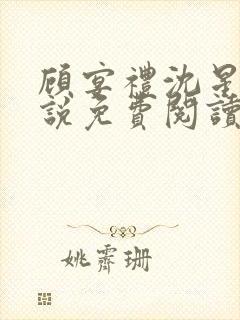 顾宴禮沈星
說免費閱讀
姚霽珊